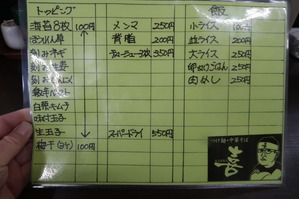 トッピング
海苔8枚 100円
ほうれん草
刻みネギ
刻み生姜
刻みにんにく
味付玉子
生玉子
梅干(1ヶ) 100円
メンマ 250円
背脂 200円
チャーシュー3枚 350円
スーパードライ 350円
飯
小ライス 100円
並ライス 200円
大ライス 250円
卵かけごはん 250円
肉めし 350円
つけ麺・中華そば
喜